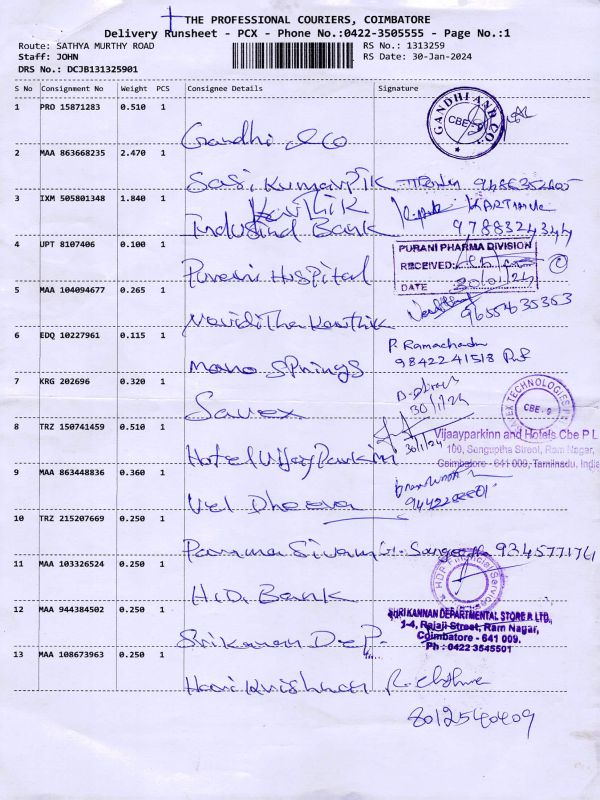 THE PROFESSIONAL COURIERS, COIMBATORE
Delivery Runsheet - PCX - Phone No.:0422-3505555 - Page No.:1
Route: SATHYA MURTHY ROAD RS No.: 1313259
Staff: JOHN RS Date: 30-Jan-2024
DRS No.: DCJB131325901
S No Consignment No Weight PCS Consignee Details Signature
1 PRO 15871283 0.510 1
GANDHI AND CO
CBE-9
Gandhi & Co
2 MAA 863668235 2.470 1
Sasi Kumar P.K
3 IXM 505801348 1.840 1
Karthik KARTHIK
Indusind Bank 9788324344
4 UPT 8107406 0.100 1
PURANI PHARMA DIVISION
RECEIVED:
DATE 30/01/24
Purani Hospital
5 MAA 104094677 0.265 1
Naviditha Karthik 9655435353
6 EDQ 10227961 0.115 1
P. Ramachadn
Mano Springs 9842241518
7 KRG 202696 0.320 1
30/1/24
SAVEX TECHNOLOGIES
CBE-9
Savex
8 TRZ 150741459 0.510 1
30/1/24
Vijaayparkinn and Hotels Cbe P L
100, Senguptha Street, Ram Nagar,
Coimbatore - 641 009, Tamilnadu, India
Hotel Vijay Parkinn
9 MAA 863448836 0.360 1
Vel Dheeva
10 TRZ 215207669 0.250 1
Parama Sivam 9345771761
11 MAA 103326524 0.250 1
HDB Financial Service
H.D. Bank
12 MAA 944384502 0.250 1
SHRI KANNAN DEPARTMENTAL STORE P. LTD.,
1-4, Rajaji Street, Ram Nagar,
Coimbatore - 641 009.
Ph : 0422 3545501
Srikanan Dep.
13 MAA 108673963 0.250 1
Hari Krishnan
8012540409